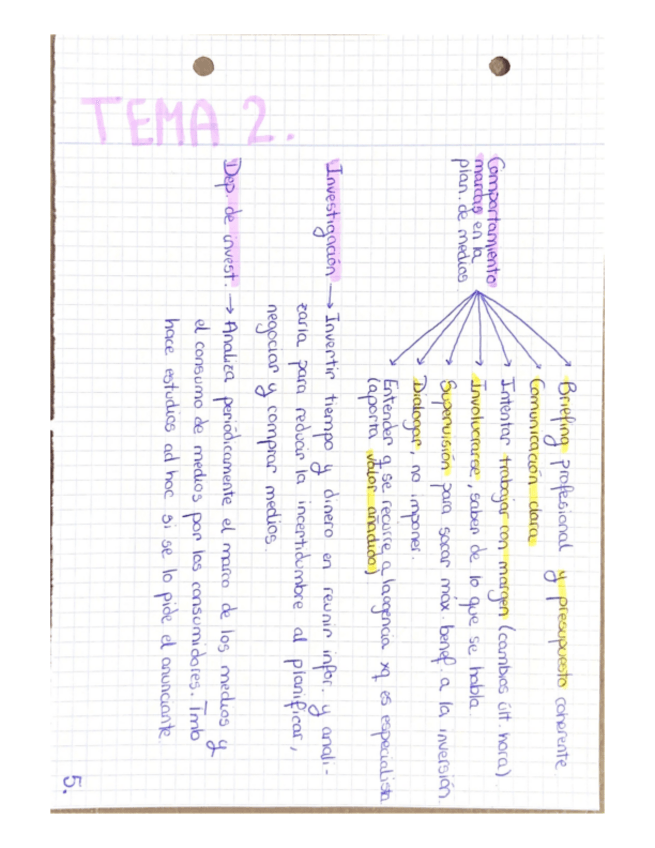 TEMA 2.
Comportamiento
marcas en la
plan. de medios
Briefing profesional y presupuesto coherente
Comunicación clara
Intentar trabajar con margen (cambios últ. hora)
Involucrarse, saben de lo que se habla.
Supervisión para sacar máx. benef. a la inversión.
Dialogar, no imponer.
Entender q se recurre a la agencia xq es especialista
(aporta valor añadido)
Investigación → Invertir tiempo y dinero en reunir infor. y anali-
zarla para reducir la incertidumbre al planificar,
negociar y comprar medios.
Dep. de invest. → Analiza periódicamente el marco de los medios y
el consumo de medios por los consumidores. Tmb
hace estudios ad hoc si se lo pide el anunciante.
5.